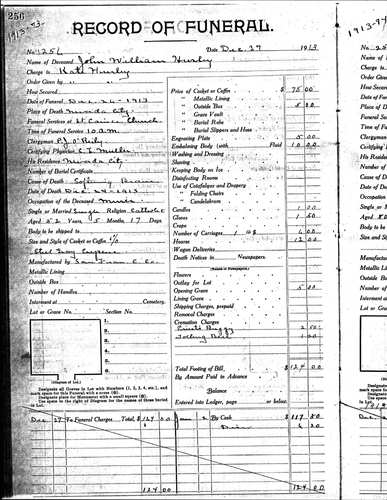 256
RECORD OF FUNERAL.
No. 256 Date Dec. 27 1913
Name of Deceased John William Hurley
Charge to Kate Hurley
Order Given by "
How Secured
Date of Funeral Dec. 26 - 1913
Place of Death Nevada City
Funeral Services at Church
Time of Funeral Service 10 a.m.
Clergyman P.J. O'Reily
Certifying Physician C. L. Muller
His Residence Nevada City
Number of Burial Certificate
Cause of Death Softening Brain
Date of Death Dec. 24 - 1913
Occupation of the Deceased Miner
Single or Married Single Religion Catholic
Aged 52 Years 5 Months 17 Days
Body to be shipped to
Size and Style of Casket or Coffin
Manufactured by San Fran C. Co.
Metallic Lining
Outside Box
Number of Handles
Interment at Cemetery.
Lot or Grave No. Section No.
1.
2.
3.
4.
5.
6.
(Diagram of Lot.)
Designate all Graves in Lot with Numbers (1, 2, 3, 4, etc.), and
mark space for this Funeral with a cross (X).
Designate place for Monument with a small square (☒).
Use space to right of Diagram for the names of those buried
in Lot.
Price of Casket or Coffin $ 75 00
" Metallic Lining
" Outside Box 5 00
" Grave Vault
" Burial Robe
" Burial Slippers and Hose
Engraving Plate 5 00
Embalming Body (with Fluid 10 00
Washing and Dressing
Shaving
Keeping Body on Ice
Disinfecting Rooms
Use of Catafalque and Drapery
" Folding Chairs
" Candelabrum
Candles 1 00
Gloves 1 50
Crape
Number of Carriages 1 @ $ 6 00
Hearse 12 00
Wagon Deliveries
Death Notices in Newspapers
(Names of Newspapers.)
Flowers
Outlay for Lot
Opening Grave 5 00
Lining Grave
Shipping Charges, prepaid
Removal Charges
Cremation Charges
Buggy 2 50
Tolling Bell 1 00
Total Footing of Bill $ 124 00
By Amount Paid in Advance
Balance
Entered into Ledger, page or below.
Dec 27 To Funeral Charges Total, $ 124 00 Jan 2 By Cash $ 117 80
6 20
124 00 124 00